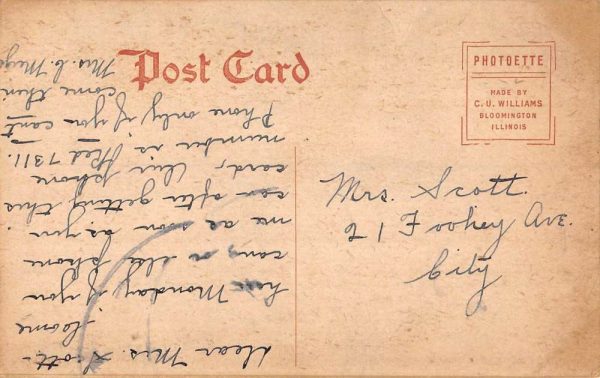 Post Card
PHOTOETTE
MADE BY
C. U. WILLIAMS
BLOOMINGTON
ILLINOIS
Mrs. Scott.
21 Foohey Ave.
City
Dear Mrs. Scott-
Come
here Monday if you
can, or else phone
me as soon as you
can after getting this
card, Our phone
number is Hec 7311.
Phone only if you can't
come then
Mrs. C.